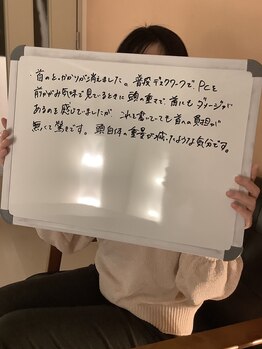 首のとっかかりが消えました。普段デスクワークでPCを
前かがみ気味で見ているときに頭の重さで、首にもダメージが
あるのを感じていましたが、これをやってても首への負担が
無くて驚きです。頭自体の重量が減ったような気分です。